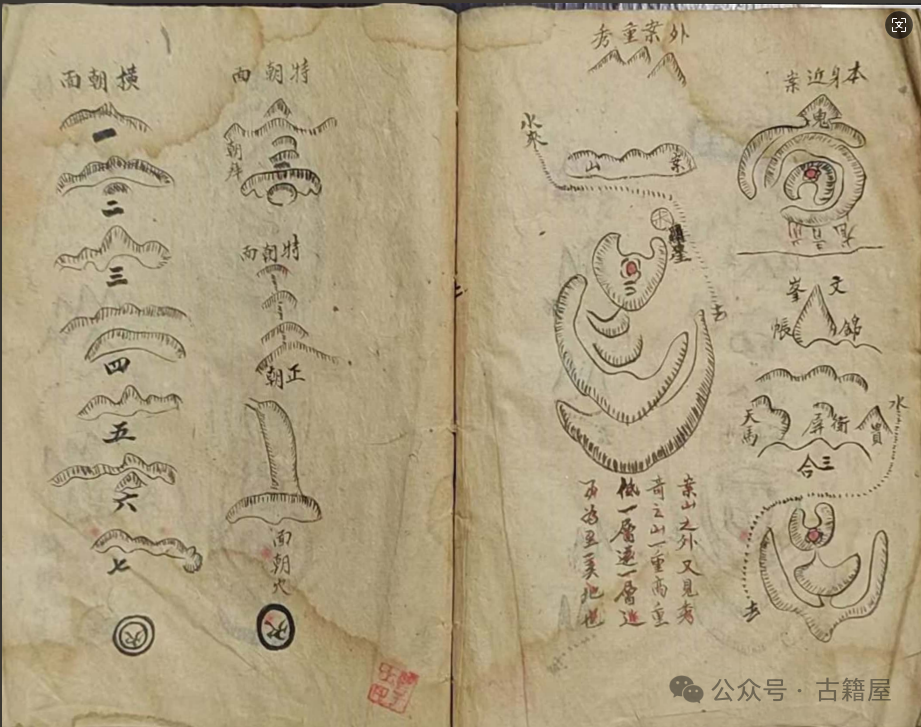 本身近案
鬼
文峯
錦帳
天馬
屏
貴
水
三合
去
外案重秀
水來
案山
羅星
去
案山之外又見秀
奇之山一重高一重
低一層遠一層
地也
特朝面
朝拜
特朝面
正朝
面朝穴
穴
橫朝面
一
二
三
四
五
六
七
穴
公众号 · 古籍屋